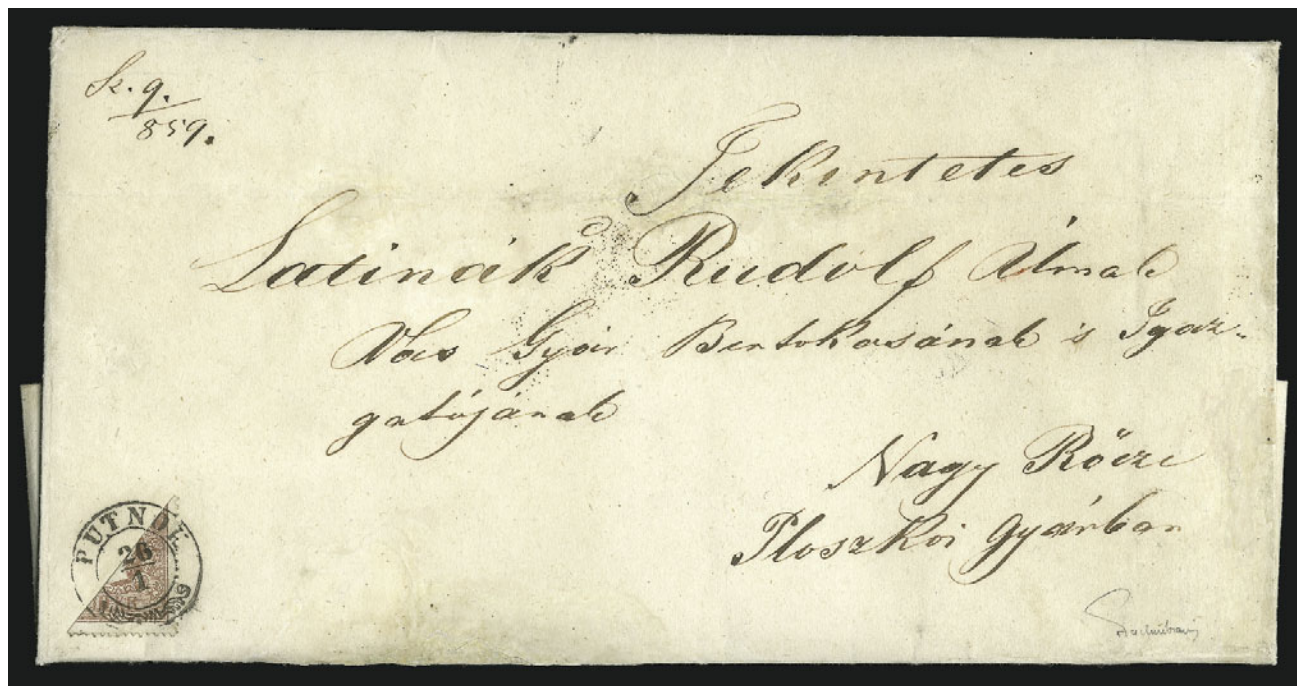 Sz. 9.
859.
Tekintetes
Latinák Rudolf Úrnak
Vas Gyár Birtokosának is Igaz-
gatójának
Nagy Rőcze
Ploszkói Gyárban
PUTNOK
26
1